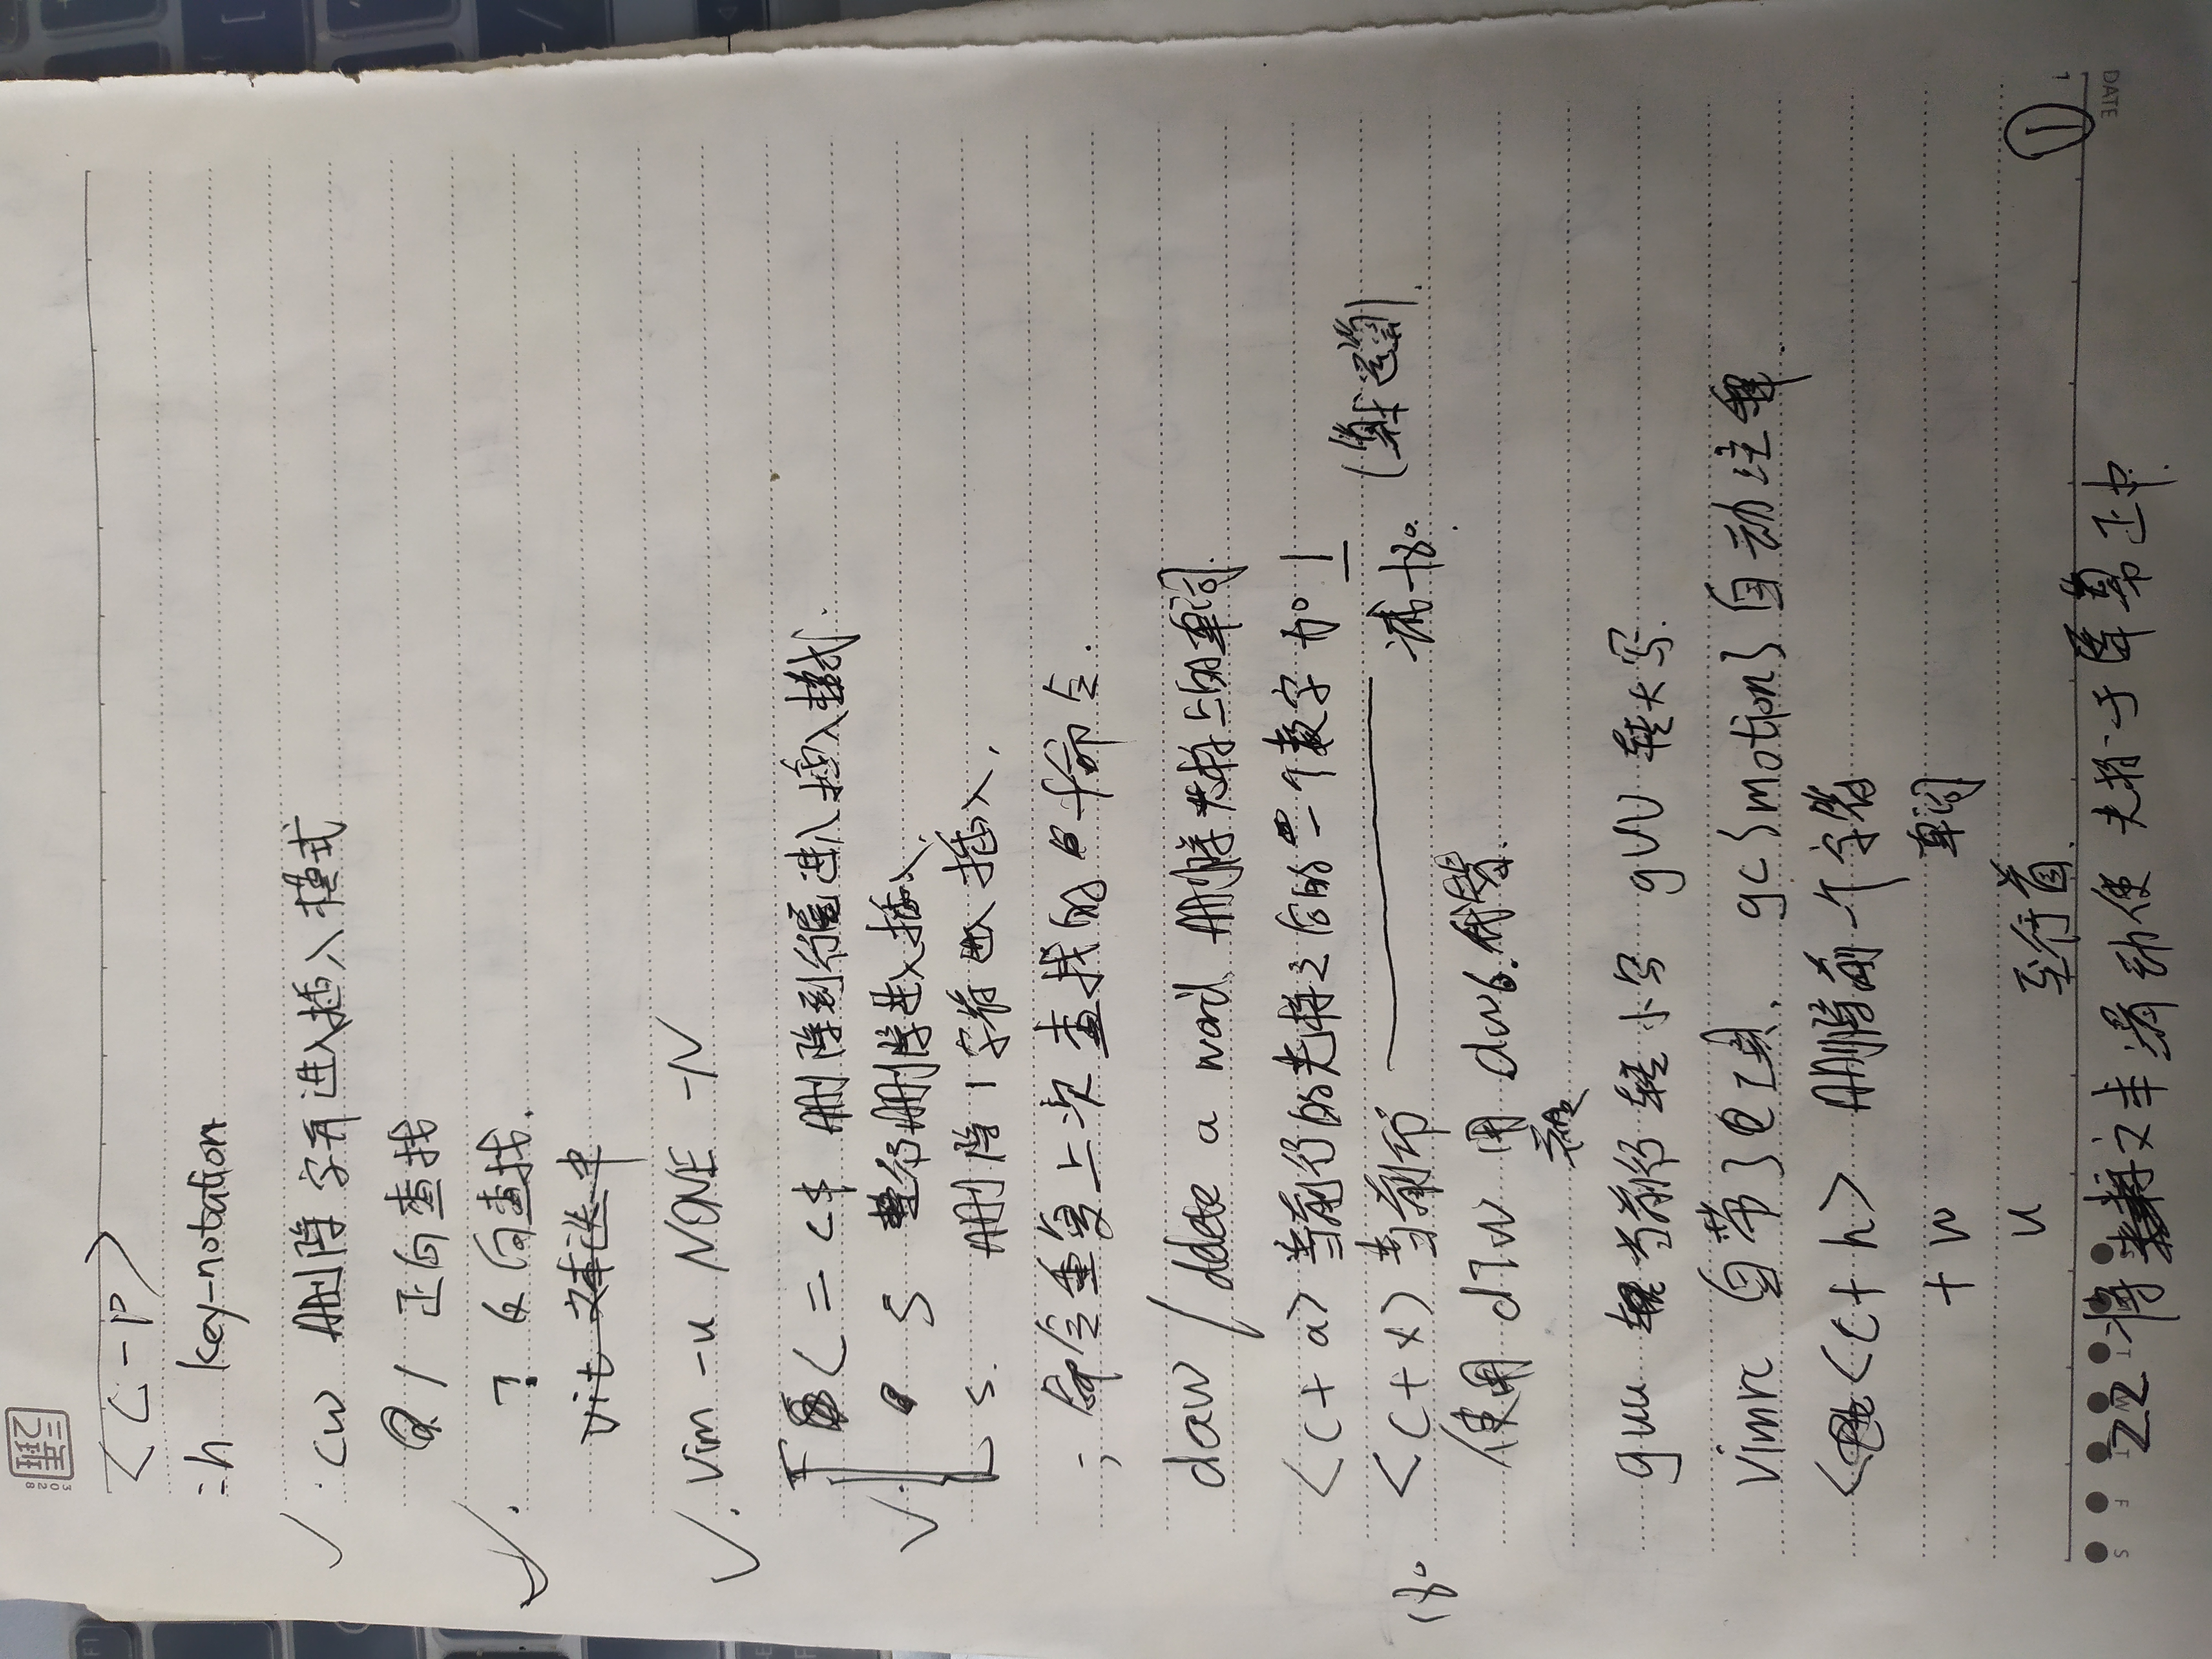 <C-P>
:h key-notation
✓ . cw 删除字再进入插入模式
/ 正向查找
✓ . ? 反向查找.
✓ . Vim -u NONE -N
C = c$ 删除到行尾进入插入模式.
✓ . S 整行删除进入插入.
s. 删除1字符进入插入.
; 命令重复上次查找的 f命令.
daw / delete a word 删除光标上的单词.
<C + a> 当前行的光标之后的一个数字加 1
<C + x> 当前 减
使用 d7w 用 dw6.
guu 当前行转小写 gUU 转大写.
Vimrc 自带了 工具. gc{motion} 自动注释.
<C + h> 删除前一个字符
+ w 单词
u 至行首.
①
DATE
S
T
W
T
F
S
zz 将文本滚动使光标于屏幕正中.